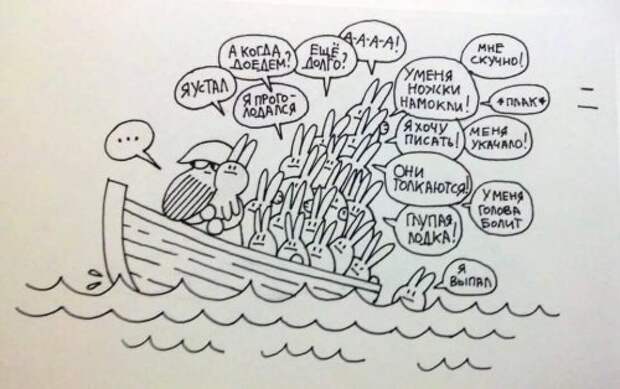 ...
Я УСТАЛ
А КОГДА
ДОЕДЕМ?
Я ПРОГО-
ЛОДАЛСЯ
ЕЩЁ
ДОЛГО?
А-А-А-А!
МНЕ
СКУЧНО!
У МЕНЯ
НОЖСКИ
НАМОКЛИ!
*ПЛАК*
Я ХОЧУ
ПИСАТЬ!
МЕНЯ
УКАЧАЛО!
ОНИ
ТОЛКАЮТСЯ!
У МЕНЯ
ГОЛОВА
БОЛИТ
ГЛУПАЯ
ЛОДКА!
Я
ВЫПАЛ